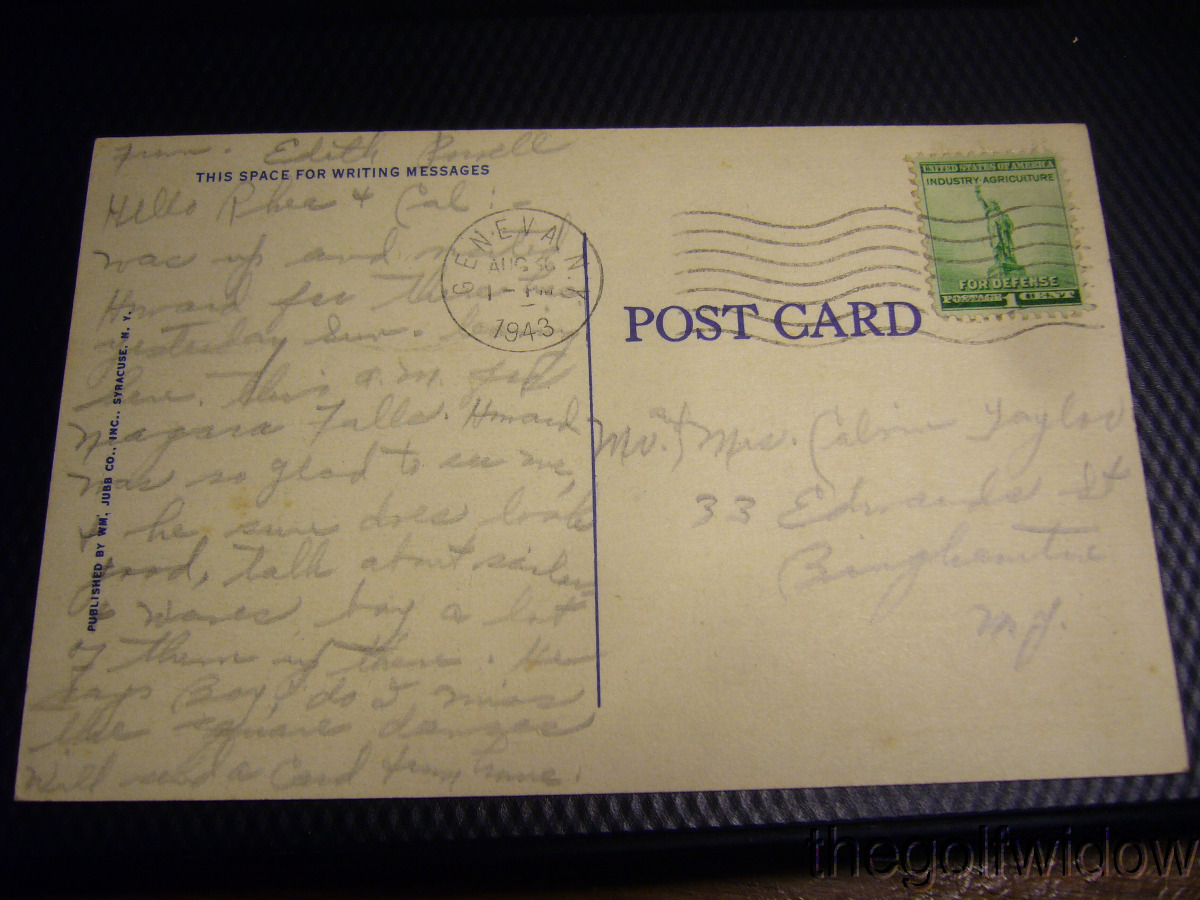 From. Edith Powell
THIS SPACE FOR WRITING MESSAGES
Hello Rhea & Cal :-
was up and
Howard for
yesterday Sun.
here this a.m. for
Niagara Falls. Howard
was so glad to see me,
& he sure does look
good, talk about sailors
& waves boy a lot
of them up there. He
says Boy, do I miss
the square dances
Will send a Card from
PUBLISHED BY WM. JUBB CO., INC., SYRACUSE, N. Y.
GENEVA N.Y.
AUG 16
1943
POST CARD
UNITED STATES OF AMERICA
INDUSTRY·AGRICULTURE
FOR DEFENSE
POSTAGE 1 CENT
Mr. & Mrs. Calvin Taylor
33 Edwards St
Binghamton
N.Y.
thegolfwidow